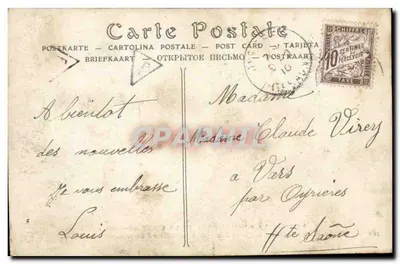 Carte Postale
POSTKARTE - CARTOLINA POSTALE - POST CARD - TARJETA
BRIEFKAART - ОТКРЫТОЕ ПИСЬМО - POSTKAART
CHIFFRE
10 CENTIMES
À PERCEVOIR
TAXE
A bientôt
des nouvelles
Je vous embrasse
Louis
Madame
Madame Claude Virey
à Vars
par Oyrières
Hte Saône